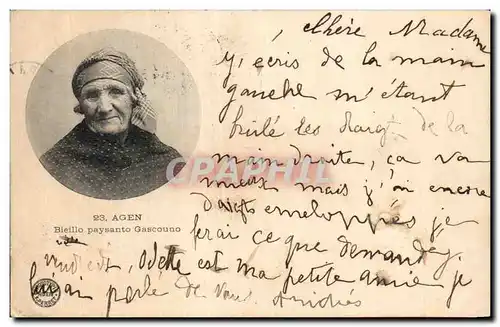 chère Madame
j'écris de la main
gauche m'étant
brulé les doigts de la
main droite, ça va
mieux mais j'ai encore
doigts enveloppés je
ferai ce que demandez
23. AGEN
Bieillo paysanto Gascouno
vendredi, Odette est ma petite amie je
lui ai parlé de vous. Amitiés
CPA
PHENIX